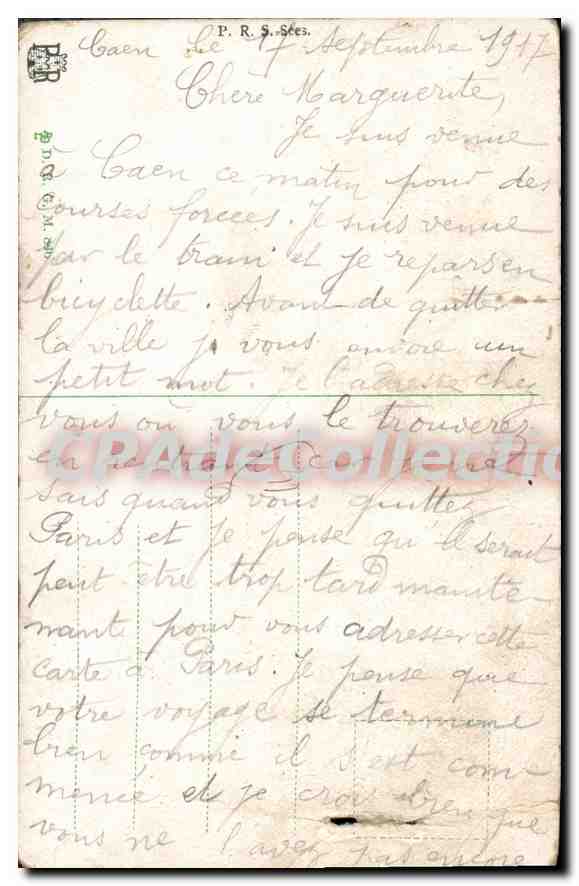 P. R. S. Sees.
Caen le 17 Septembre 1917
Chère Marguerite,
Je suis venue
à Caen ce matin pour des
courses forcées. Je suis venue
par le train et je repars en
bicyclette. Avant de quitter
la ville je vous envoie un
petit mot. Je l'adresse chez
vous où vous le trouverez
en rentrant car je ne
sais quand vous quittez
Paris et je pense qu'il serait
peut être trop tard mainte-
nant pour vous adresser cette
carte à Paris. Je pense que
votre voyage se termine
bien comme il s'est com-
mencé et je crois bien que
vous ne l'avez pas encore
CPAdeCollection